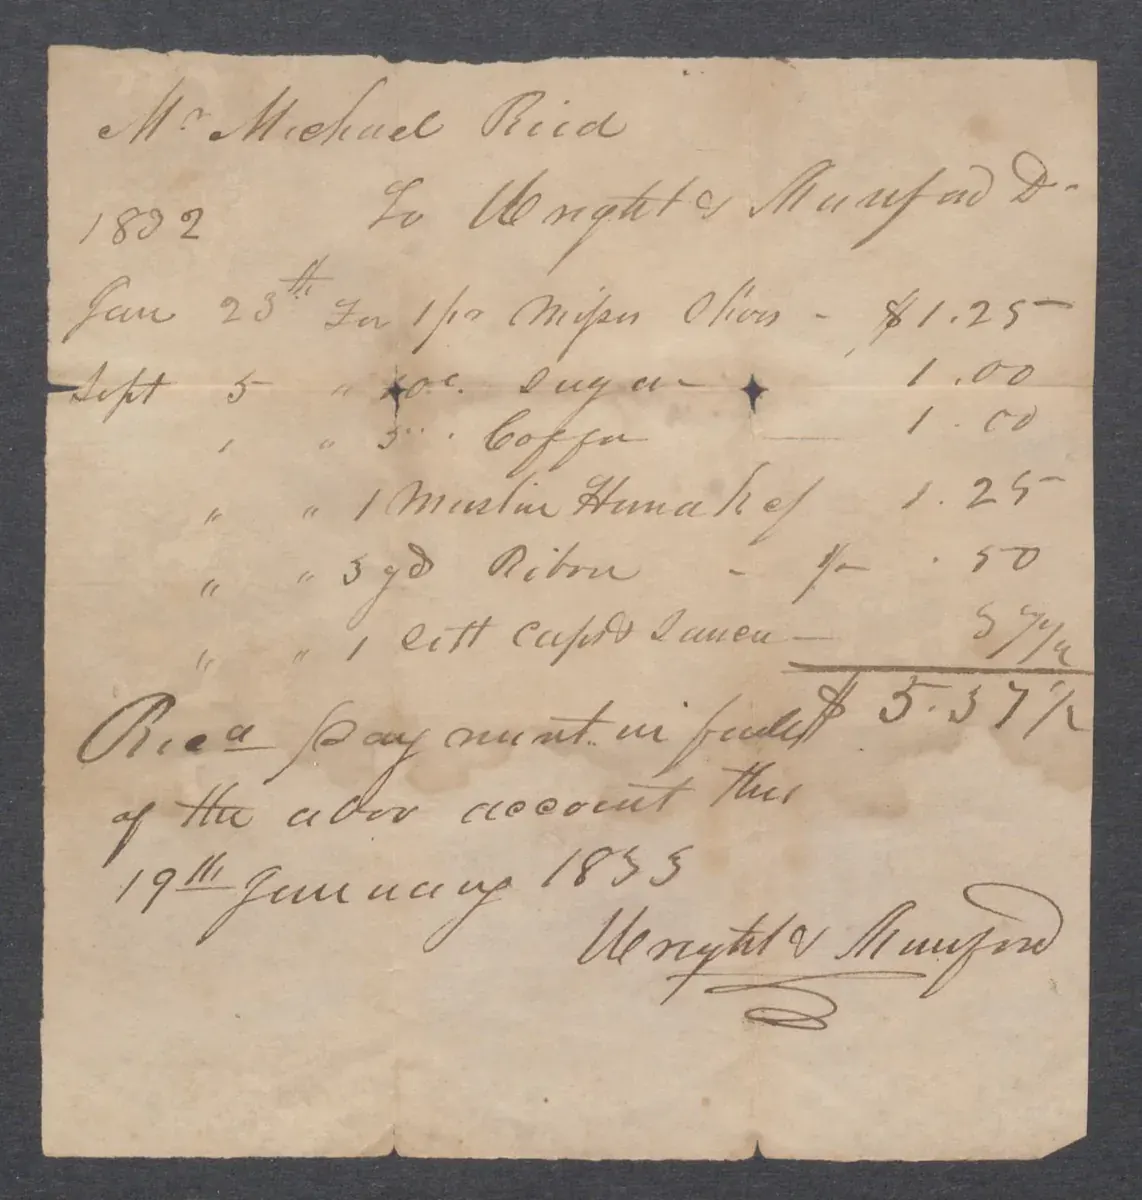 Mr Michael Reed
1832 To Wright & Munford Dr
Jan 23th For 1 pr Misses Shoes - $1.25
Sept 5 " 10 lb. Sugar 1.00
" " 5 " Coffee 1.00
" " 1 Muslin Handkcf 1.25
" " 3 yd Ribon - 1/- .50
" " 1 sett Cups & Saucers - 37 1/2
$ 5.37 1/2
Recd payment in full
of the abov account this
19th January 1833
Wright & Munford